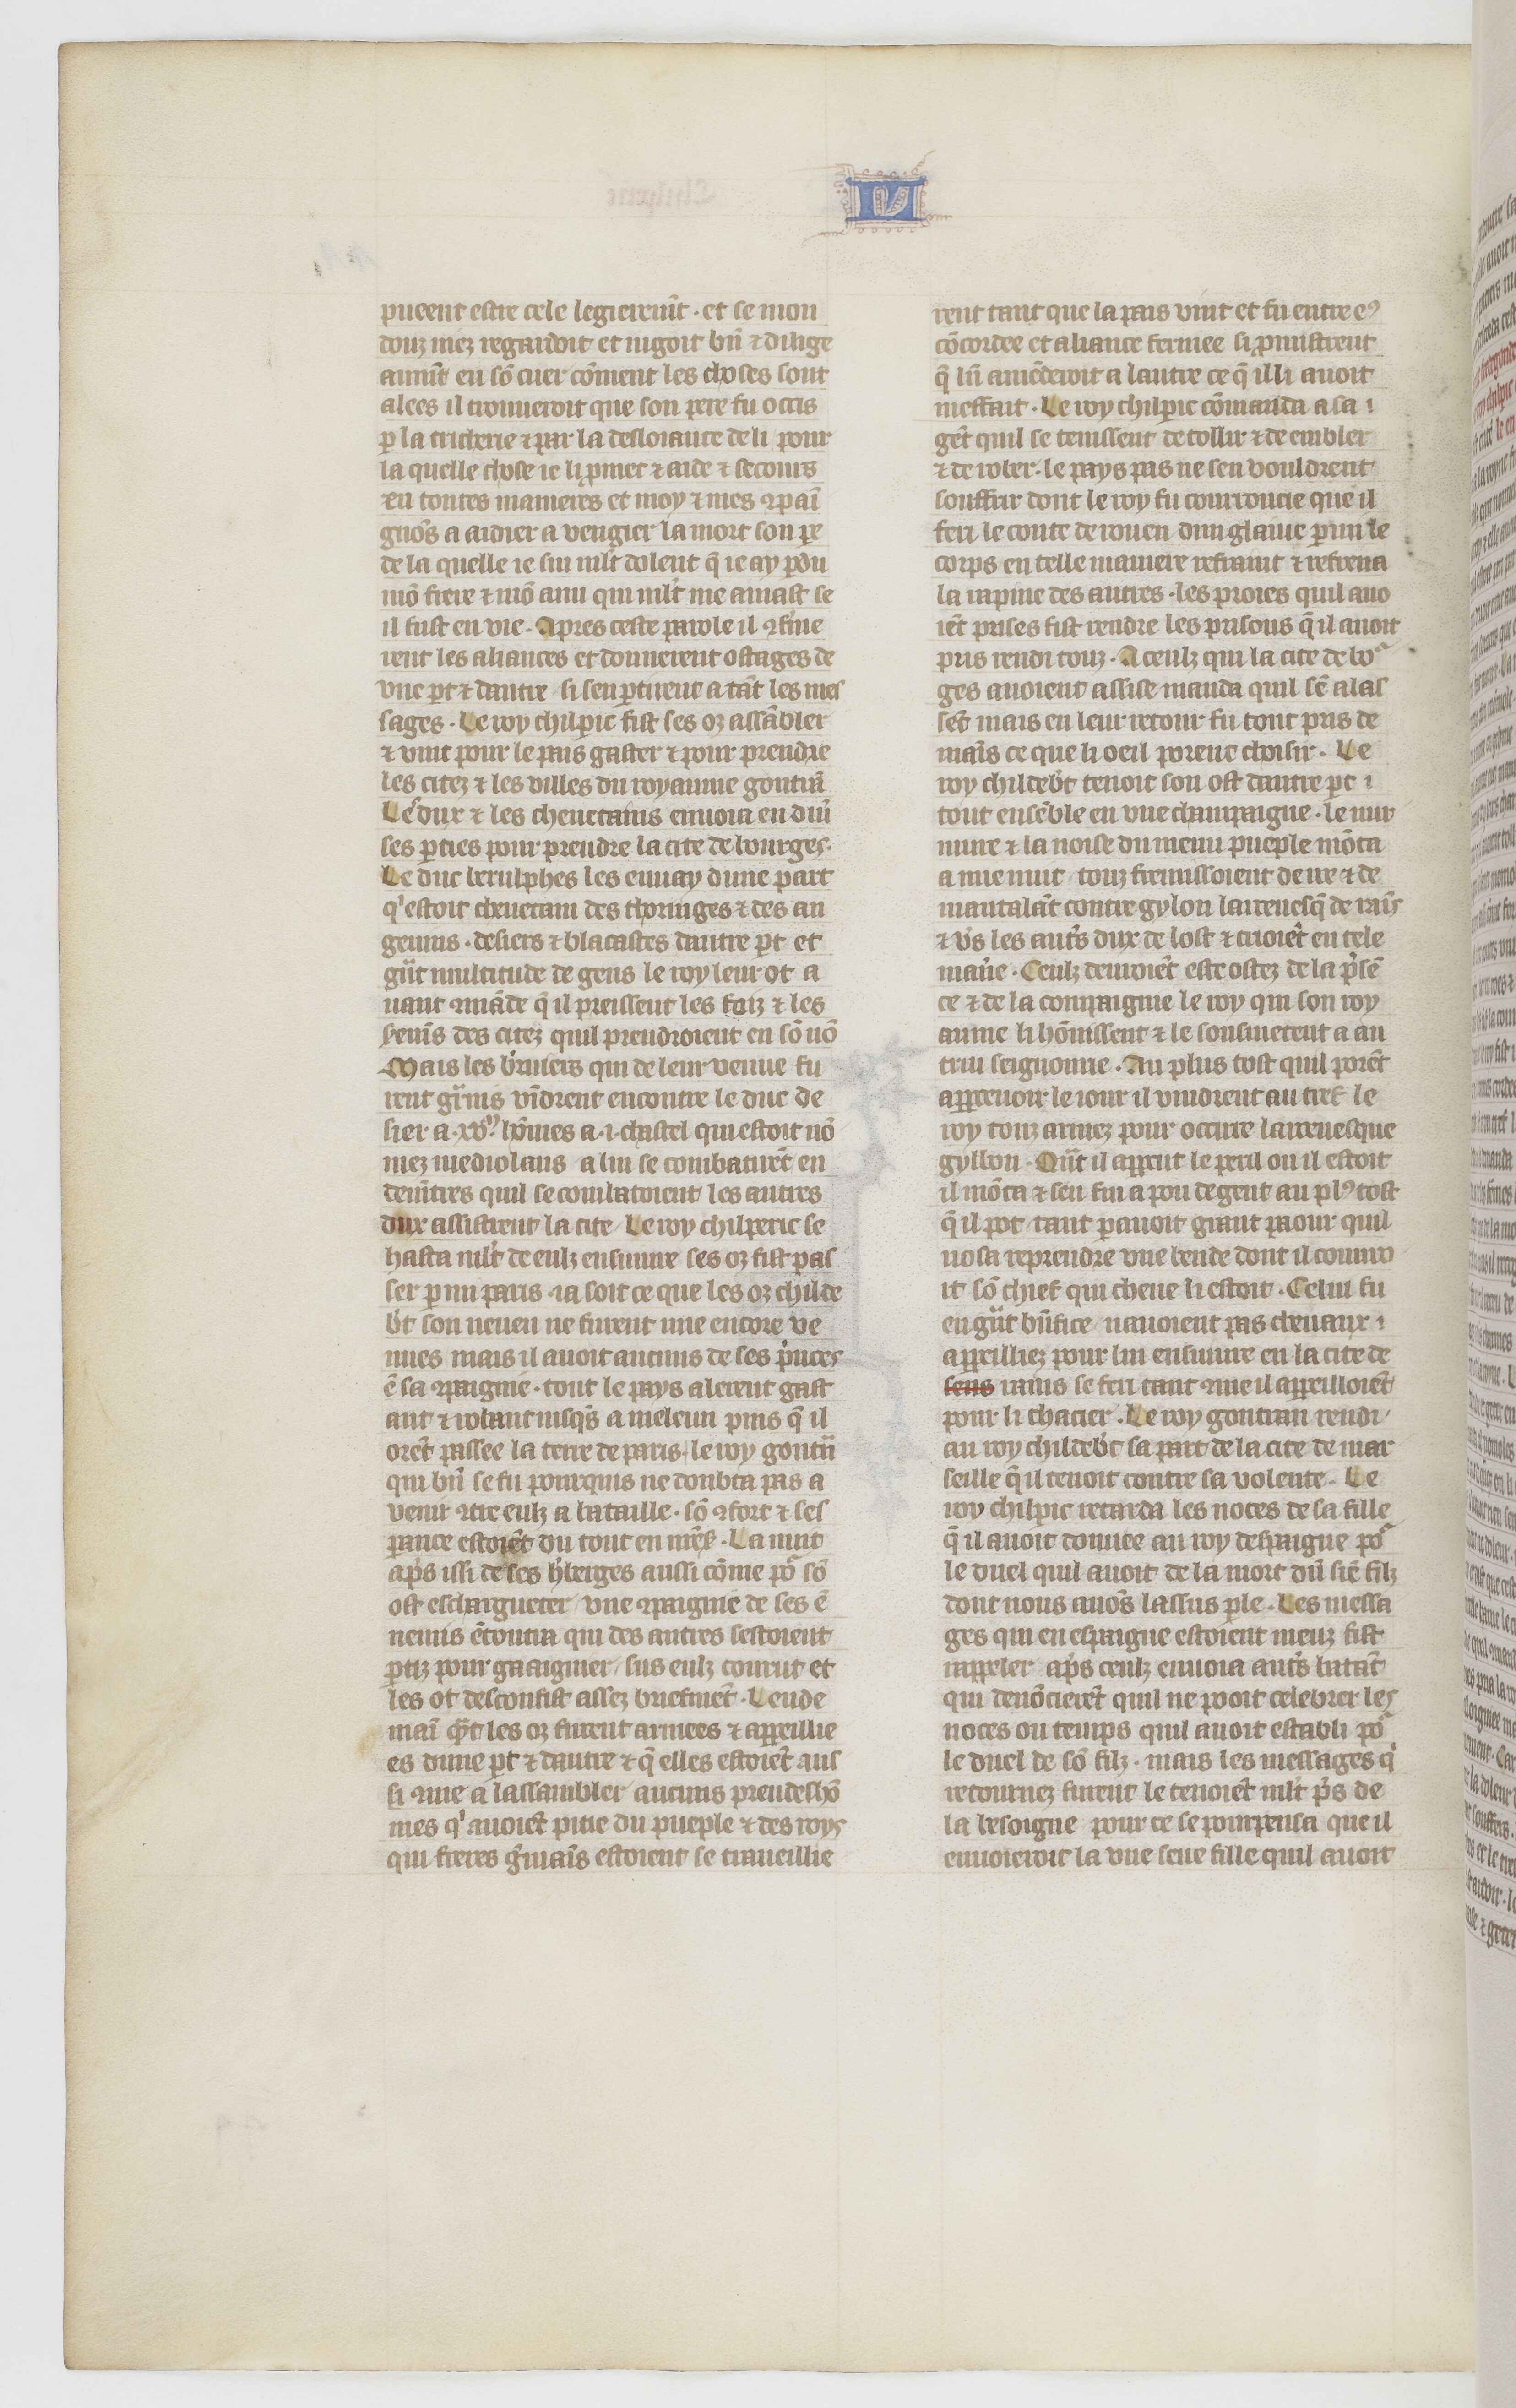 IV
pueent estre cele legierem̃t · et se mon
douz niez regardoit et iugoit bñ ⁊ dilige
aument en sõ cuer cõment les choses sont
alees il trouueroit que son pere fu occis
ꝑ la tricherie ⁊ par la desloiaute de li pour
la quelle chose ie li ꝓmet ⁊ aide ⁊ secours
en toutes manieres et moy ⁊ mes ꝯpaĩ
gnõs a aidier a vengier la mort son pe
de la quelle ie sui ml't dolent q̃ ie ay ꝑdu
mõ frere ⁊ mõ ami qui ml't me amast se
il fust en vie · Apres ceste parole il ꝯferme
rent les aliances et donnerent ostages de
vne ꝑt ⁊ dautre si sen ꝑtirent a tãt les mes
sages · Le roy chilperic fist ses oz assẽbler
⁊ vint pour le pais gaster ⁊ pour prendre
les citez ⁊ les villes du royaume gontrã
Les dux ⁊ les cheuetains enuoia en diũ
ses ꝑties pour prendre la cite de bourges ·
Le duc berulphes les enuay dune part
q' estoit cheuetain des thoringes ⁊ des an
geuins · desiers ⁊ blacastes dautre ꝑt et
gñt multitude de gens le roy leur ot a
uant ꝯmãde q̃ il preissent les foiz ⁊ les
seremẽs des citez quil prendroient en sõ nõ
Mais les b'ruiers qui de leur venue fu
rent garnis vĩdrent encontre le duc de
sier a · xv.ᵐ hõmes a · i · chastel qui estoit nõ
mez mediolans a lui se combatirẽt en
demẽtres quil se combatoient les autres
dux assistrent la cite Le roy chilperic se
hasta ml't de eulz ensuiure ses oz fist pas
ser ꝑmi paris · ia soit ce que les oz childe
b't son neueu ne furent mie encore ve
nues mais il auoit aucuns de ses p'nces
ẽ sa ꝯpaignie · tout le pays alerent gast
ant ⁊ robant iusq̃s a meleun puis q̃ il
orẽt passee la terre de paris · le roy gontrã
qui bñ se fu pourquis ne doubta pas a
venir ꝯtre eulz a bataille · sõ ꝯfort ⁊ ses
ꝑance estoiẽt du tout en nr̃e s' · La nuit
ap's issi de ses h'berges aussi cõme po' sõ
ost eschargueter vne ꝯpaignie de ses ẽ
nemis ẽcontra qui des autres sestoient
ꝑtiz pour gaaignier sus eulz courut et
les ot desconfist assez briefmẽt · Lende
maĩ q̃nt les oz furent armees ⁊ appeillie
es dune ꝑt ⁊ dautre ⁊ q̃ elles estoiẽt aus
si ꝯme a lassambler aucuns preudeshõ
mes q' auoiẽt pitie du pueple ⁊ des roys
qui freres g'maĩs estoient se traueillie
rent tant que la pais vint et fu entre eꝰ
cõcordee et aliance fermee si ꝓmistrent
q̃ lũ amẽderoit a lautre ce q̃ il li auoit
meffait · Le roy chilperic cõmanda a sa
gẽt quil se tenissent de tollir ⁊ de embler
⁊ de rober · le pays pas ne sen vouldrent
souffrir dont le roy fu courroucie que il
feri le conte de rouen dun glaiue ꝑmi le
corps en telle maniere refraint ⁊ refrena
la rapine des autres · les proies quil auo
iẽt prises fist rendre les prisons q̃ il auoit
pris rendi touz · A ceulz qui la cite de bo'
ges auoient assise manda quil sẽ alas
sẽt mais en leur retour fu tout pris de
maĩs ce que li oeil poreut choisir · Le
roy childeb't tenoit son ost dautre ꝑt
tout ensẽble en vne champaigne · le mur
mure ⁊ la noise du menu pueple mõta
a mie nuit touz fremissoient de ire ⁊ de
mautalãt contre gylon larceuesq̃ de raĩs
⁊ v's les aut's dux de lost ⁊ crioiẽt en tele
maiñe · Ceulz deuroiẽt estre ostez de la p'sẽ
ce ⁊ de la compaignie le roy qui son roy
aume li hõnissent ⁊ le sousmetent a au
trui seignourie · Au plus tost quil porẽt
apperceuoir le iour il vindrent au tref le
roy touz armez pour occirre larceuesque
gyllon · Q̃nt il apprit le peril ou il estoit
il mõta ⁊ sen fui a pou de gent au plꝰ tost
q̃ il pot tant ꝑauoit grant paour quil
nosa reprendre vne bende dont il couuro
it sõ chief qui cheue li estoit · Celui fu
en gñt bñfice nauoient pas cheuaux
appeilliez pour lui ensuiure en la cite de
sens rains se feri tant ꝯme il appeilloiẽt
pour li chacier · Le roy gontran rendi
au roy childeb't sa part de la cite de mar
seille q̃ il tenoit contre sa volente · Le
roy chilperic retarda les noces de sa fille
q̃ il auoit donnee au roy despaigne po'
le duel quil auoit de la mort dũ siẽ filz
dont nous auõs lassus ꝑle · Les messa
ges qui en espaigne estoient meuz fist
rappeler ap's ceulz enuoia aut's batãt
qui denõcierẽt quil ne pooit celebrer les
noces ou temps quil auoit establi po'
le duel de sõ filz · mais les messages q'
retournez furent le tenoiẽt ml't p's de
la besoigne pour ce se pourpensa que il
enuoieroit la vne seue fille quil auoit